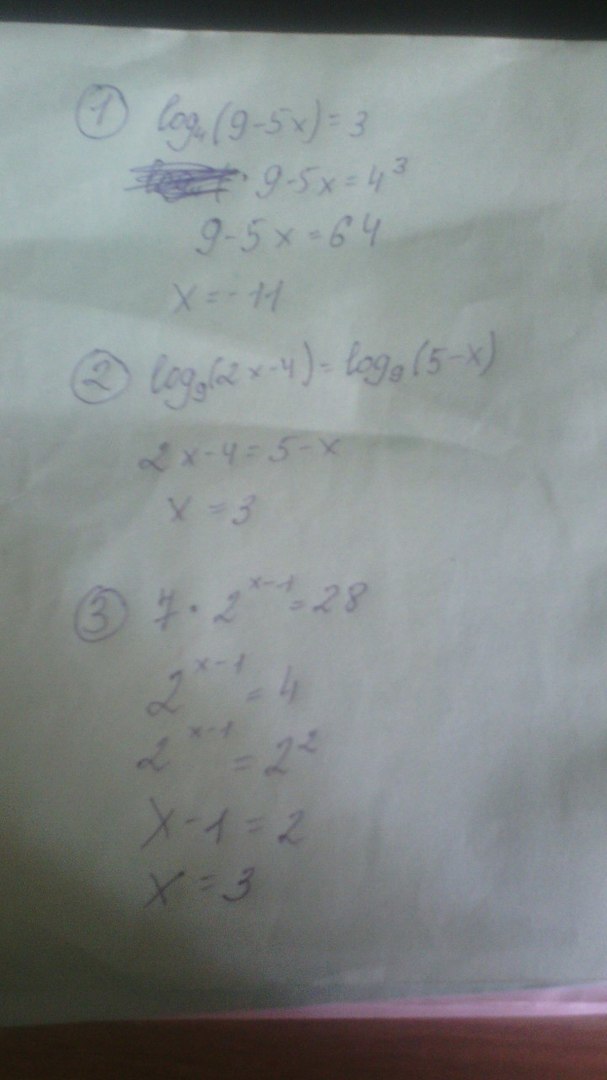 ① log₄(9-5x)=3
9-5x=4³
9-5x=64
x=-11
② log₉(2x-4)=log₉(5-x)
2x-4=5-x
x=3
③ 7·2^(x-1)=28
2^(x-1)=4
2^(x-1)=2²
x-1=2
x=3